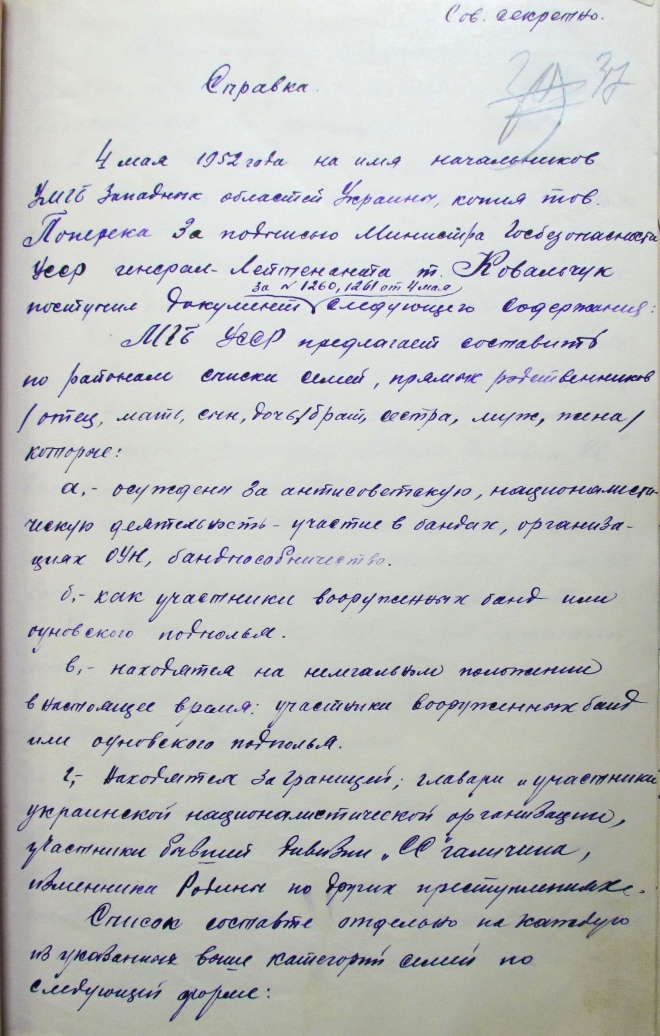 Сов. секретно.
37
Справка.
4 мая 1952 года на имя начальников
УМГБ Западных областей Украины, копия тов.
Поперека За подписью Министра Госбезопасности
УССР генерал-Лейтенанта т. Ковальчук
за № 1260, 1261 от 4 мая
поступил документ следующего содержания:
МГБ УССР предлагает составить
по районам списки семей, прямых родственников
/отец, мать, сын, дочь, брат, сестра, муж, жена/
которые:
а,- осуждены за антисоветскую, националисти-
ческую деятельность - участие в бандах, организа-
циях ОУН, бандпособничество.
б,- как участники вооруженных банд или
оуновского подполья.
в,- находятся на нелегальном положении
в настоящее время: участники вооруженных банд
или оуновского подполья.
г,- Находятся За границей; главари и участники
украинской националистической организации,
участники бывшей дивизии „СС" галичина,
изменника Родины по других преступлениях.
Список составте отдельно на каждую
из указанных выше категорий семей по
следующей форме: